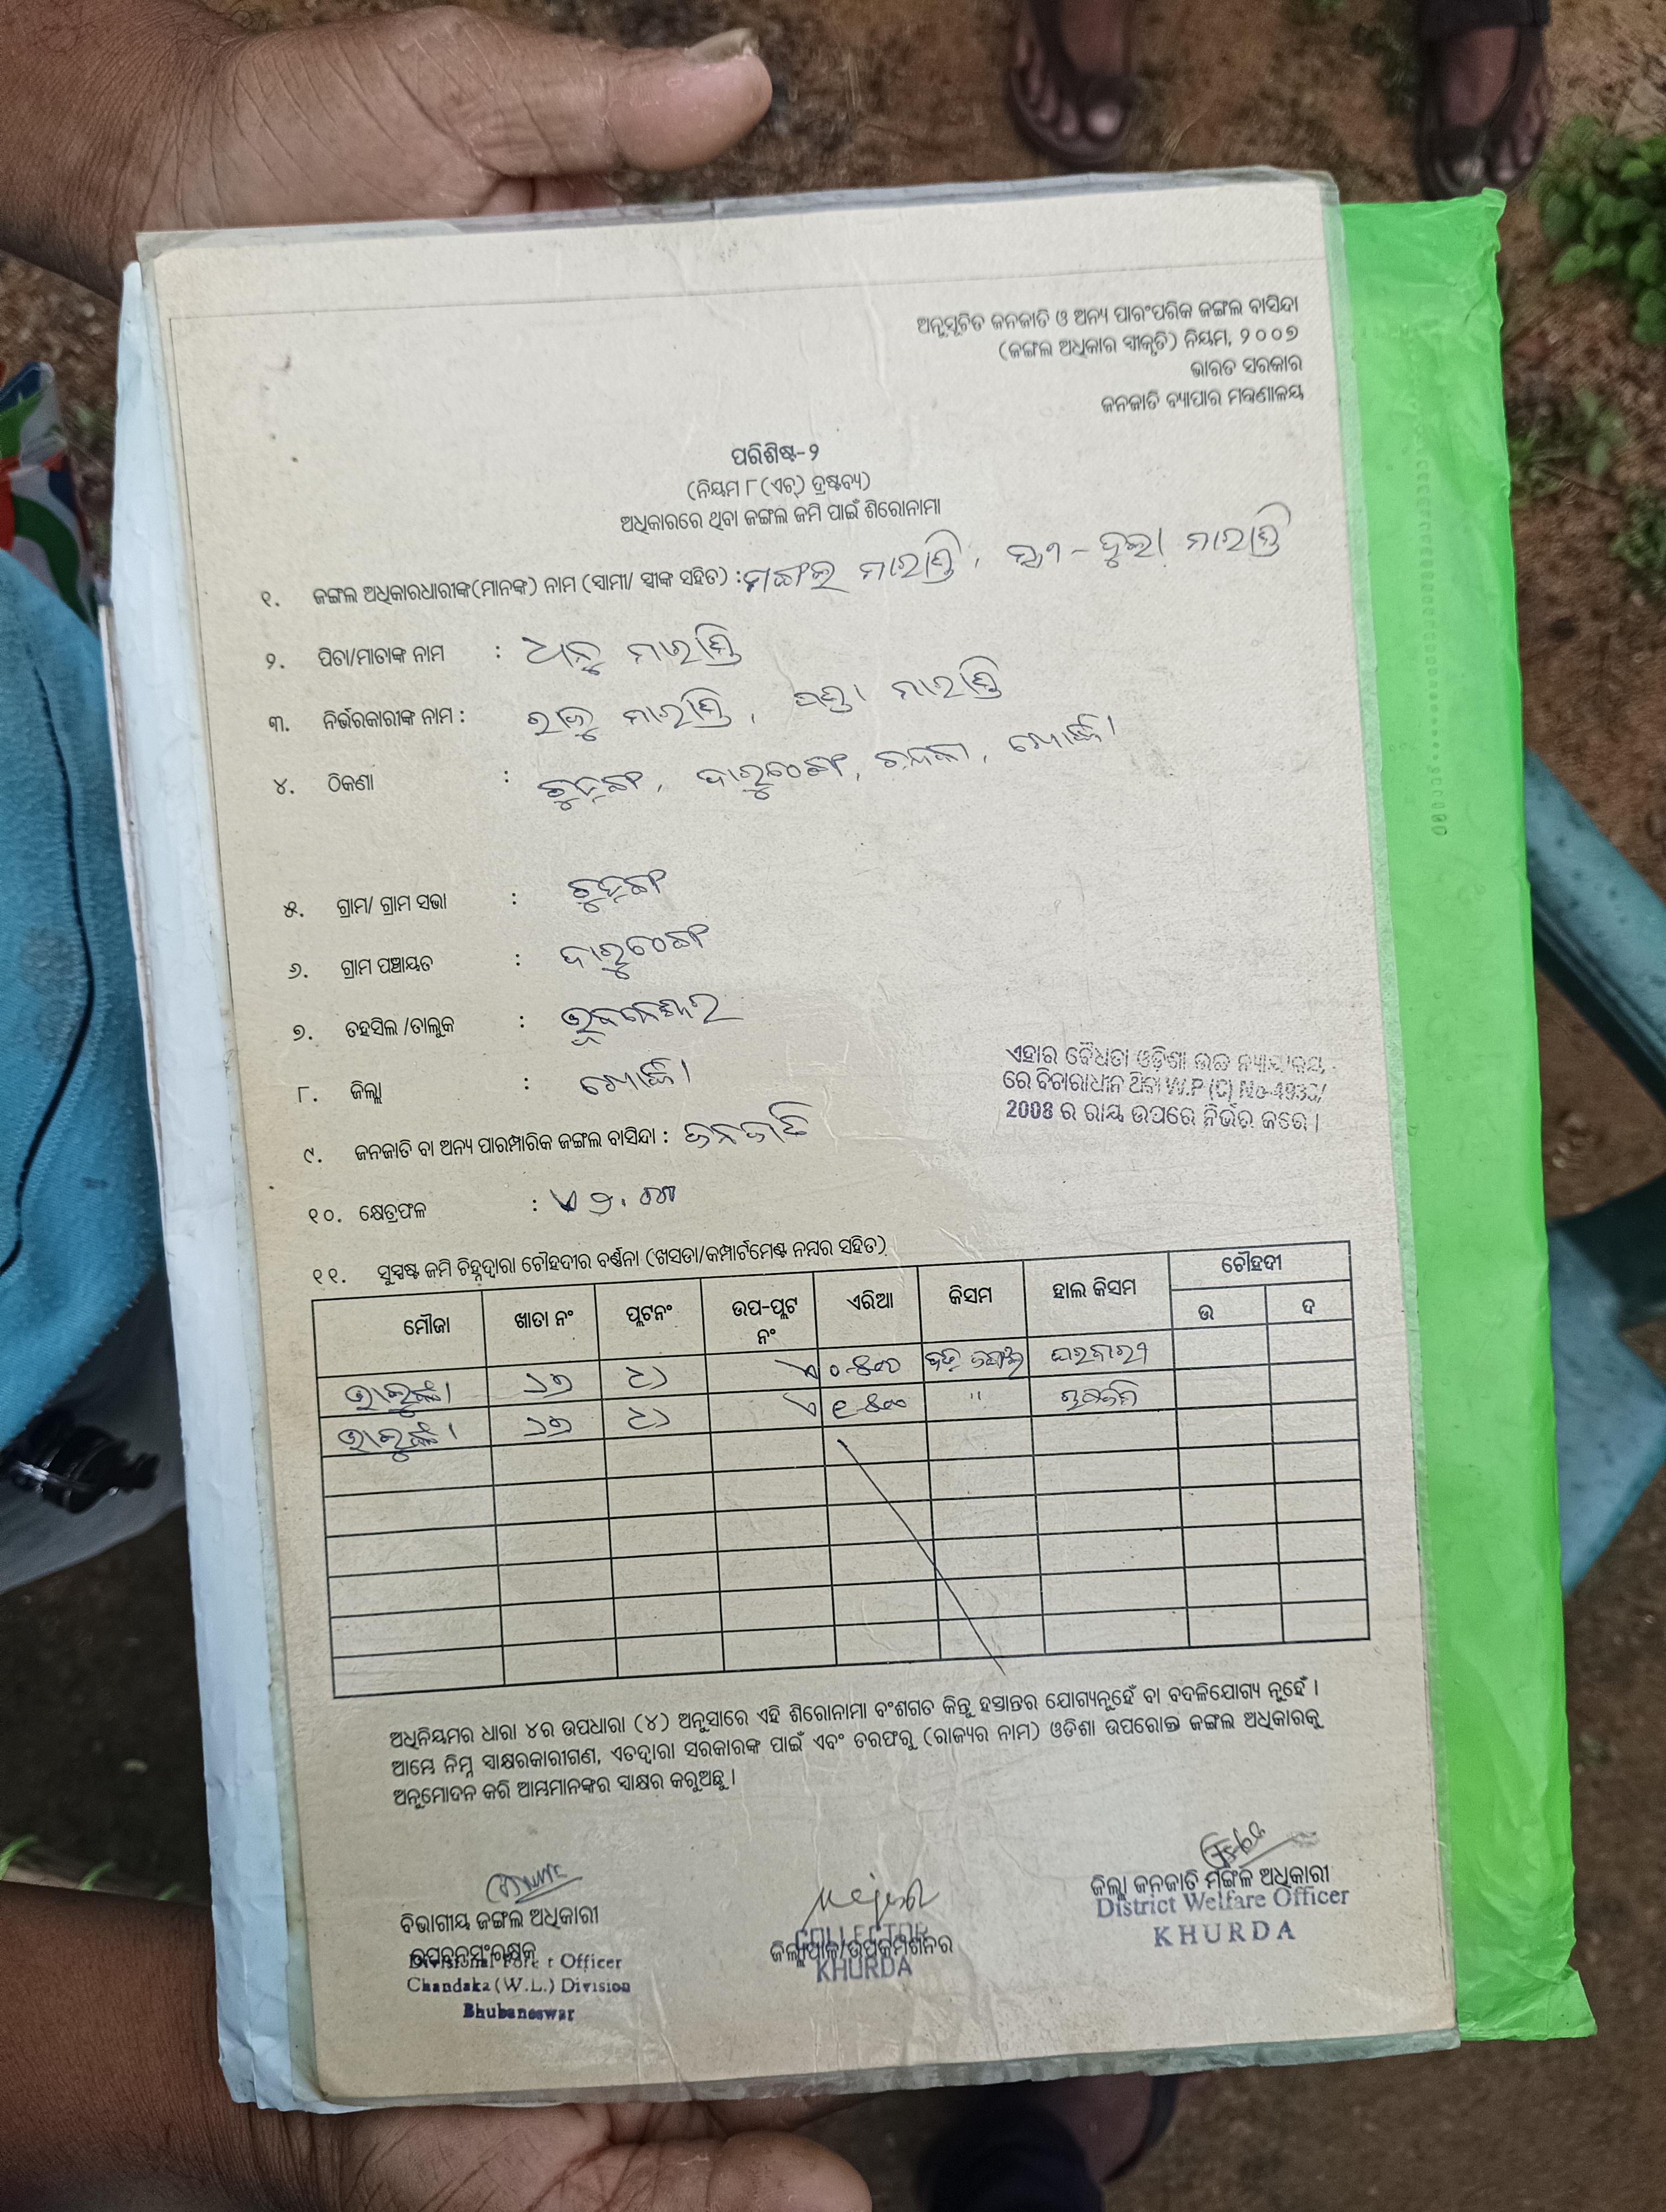 ଅନୁସୂଚିତ ଜନଜାତି ଓ ଅନ୍ୟ ପାରଂପରିକ ଜଙ୍ଗଲ ବାସିନ୍ଦା
(ଜଙ୍ଗଲ ଅଧିକାର ସ୍ୱୀକୃତି) ନିୟମ, ୨୦୦୭
ଭାରତ ସରକାର
ଜନଜାତି ବ୍ୟାପାର ମନ୍ତ୍ରଣାଳୟ
ପରିଶିଷ୍ଟ-୨
(ନିୟମ ୮(ଏଚ୍) ଦ୍ରଷ୍ଟବ୍ୟ)
ଅଧିକାରରେ ଥିବା ଜଙ୍ଗଲ ଜମି ପାଇଁ ଶିରୋନାମା
୧. ଜଙ୍ଗଲ ଅଧିକାରଧାରୀଙ୍କ(ମାନଙ୍କ) ନାମ (ସ୍ୱାମୀ/ ସ୍ତ୍ରୀଙ୍କ ସହିତ) : ମଙ୍ଗଲ ମାରାଣ୍ଡି, ସ୍ତ୍ରୀ - ଦୁଲା ମାରାଣ୍ଡି
୨. ପିତା/ମାତାଙ୍କ ନାମ : ଧାନୁ ମାରାଣ୍ଡି
୩. ନିର୍ଭରକାରୀଙ୍କ ନାମ : ରାଜୁ ମାରାଣ୍ଡି, ମାରାଣ୍ଡି
୪. ଠିକଣା : ଦାରୁଠେଙ୍ଗ, ଚନ୍ଦକା, ଖୋର୍ଦ୍ଧା
୫. ଗ୍ରାମ/ ଗ୍ରାମ ସଭା :
୬. ଗ୍ରାମ ପଞ୍ଚାୟତ : ଦାରୁଠେଙ୍ଗ
୭. ତହସିଲ /ତାଲୁକ : ଭୁବନେଶ୍ୱର
୮. ଜିଲ୍ଲା : ଖୋର୍ଦ୍ଧା
ଏହାର ବୈଧତା ଓଡ଼ିଶା ଉଚ୍ଚ ନ୍ୟାୟାଳୟ
ରେ ବିଚାରାଧୀନ ଥିବା W.P (C) No-4933/
2008 ର ରାୟ ଉପରେ ନିର୍ଭର କରେ ।
୯. ଜନଜାତି ବା ଅନ୍ୟ ପାରମ୍ପାରିକ ଜଙ୍ଗଲ ବାସିନ୍ଦା : ଜନଜାତି
୧୦. କ୍ଷେତ୍ରଫଳ :
୧୧. ସୁସ୍ପଷ୍ଟ ଜମି ଚିହ୍ନଦ୍ୱାରା ଚୌହଦୀର ବର୍ଣ୍ଣନା (ଖସଡା/କମ୍ପାର୍ଟମେଣ୍ଟ ନମ୍ବର ସହିତ)
ମୌଜା ଖାତା ନଂ ପ୍ଲଟନଂ ଉପ-ପ୍ଲଟ ନଂ ଏରିଆ କିସମ ହାଲ କିସମ ଚୌହଦୀ
ଉ ଦ
ଘରବାରୀ
"
ଅଧିନିୟମର ଧାରା ୪ର ଉପଧାରା (୪) ଅନୁସାରେ ଏହି ଶିରୋନାମା ବଂଶଗତ କିନ୍ତୁ ହସ୍ତାନ୍ତର ଯୋଗ୍ୟନୁହେଁ ବା ବଦଳିଯୋଗ୍ୟ ନୁହେଁ ।
ଆମ୍ଭେ ନିମ୍ନ ସ୍ୱାକ୍ଷରକାରୀଗଣ, ଏତଦ୍ୱାରା ସରକାରଙ୍କ ପାଇଁ ଏବଂ ତରଫରୁ (ରାଜ୍ୟର ନାମ) ଓଡିଶା ଉପରୋକ୍ତ ଜଙ୍ଗଲ ଅଧିକାରକୁ
ଅନୁମୋଦନ କରି ଆମ୍ଭମାନଙ୍କର ସ୍ୱାକ୍ଷର କରୁଅଛୁ ।
ବିଭାଗୀୟ ଜଙ୍ଗଲ ଅଧିକାରୀ
ଉପବନସଂରକ୍ଷକ
Divisional Forest Officer
Chandaka (W.L.) Division
Bhubaneswar
COLLECTOR
ଜିଲ୍ଲାପାଳ/ଉପକମିଶନର
KHURDA
ଜିଲ୍ଲା ଜନଜାତି ମଙ୍ଗଳ ଅଧିକାରୀ
District Welfare Officer
KHURDA